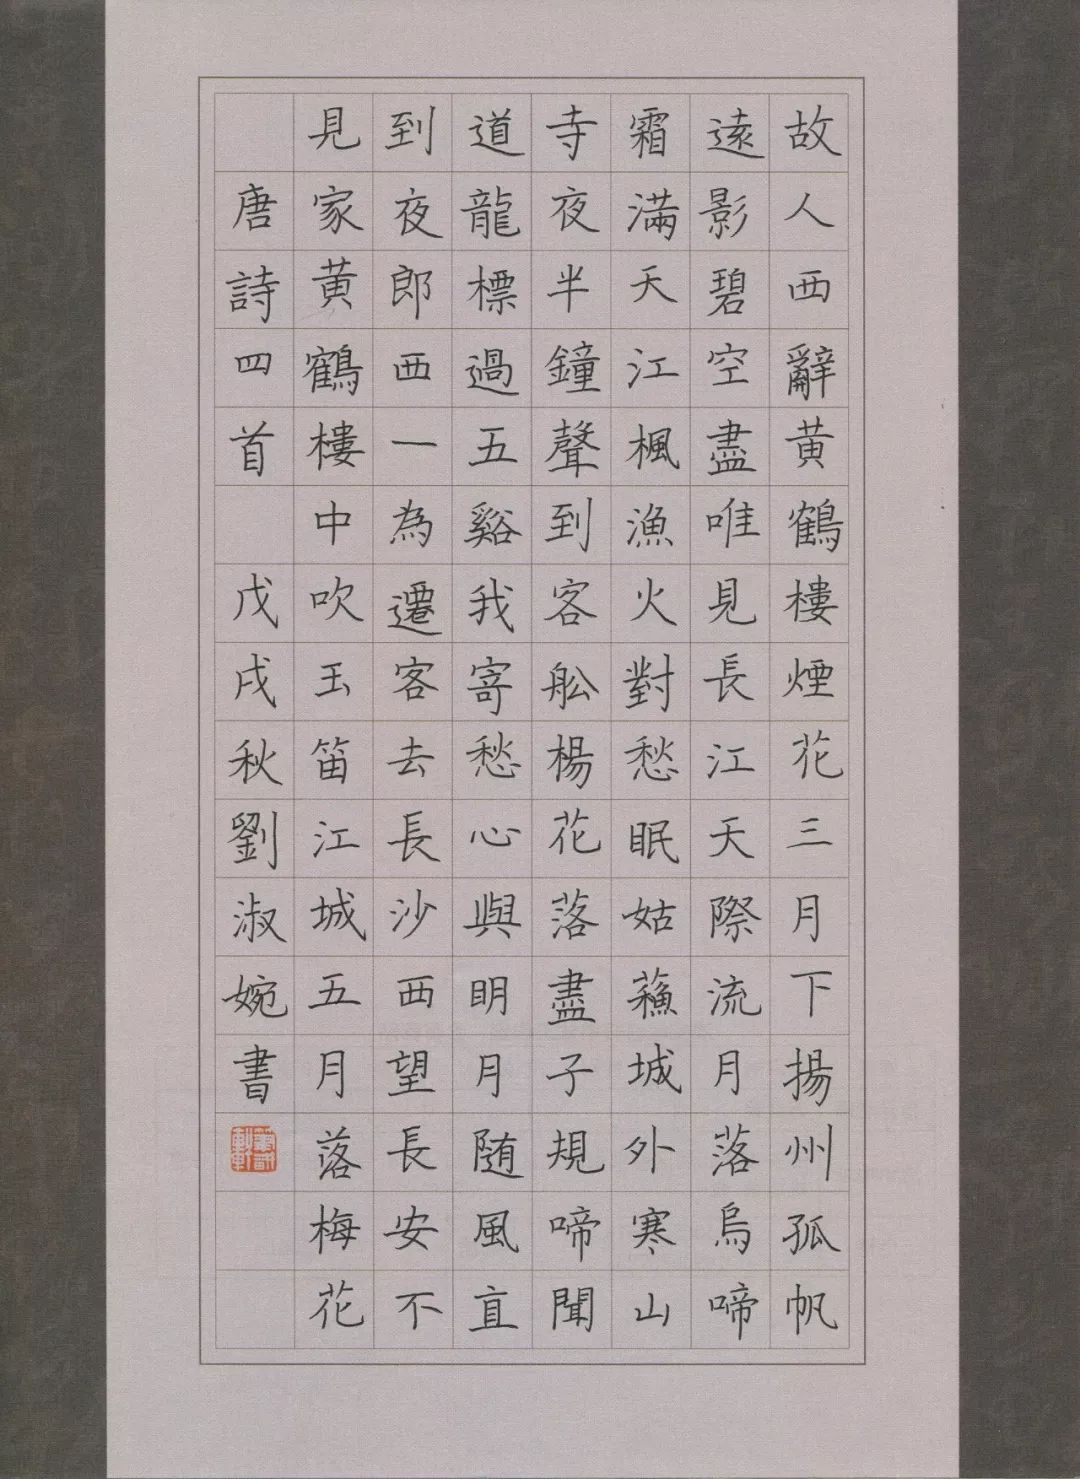 故人西辭黄鶴樓煙花三月下揚州孤帆
遠影碧空盡唯見長江天際流月落烏啼
霜滿天江楓漁火對愁眠姑蘓城外寒山
寺夜半鐘聲到客舩楊花落盡子規啼聞
道龍標過五谿我寄愁心與明月随風直
到夜郎西一為遷客去長沙西望長安不
見家黄鶴樓中吹玉笛江城五月落梅花
唐詩四首 戊戌秋劉淑婉書